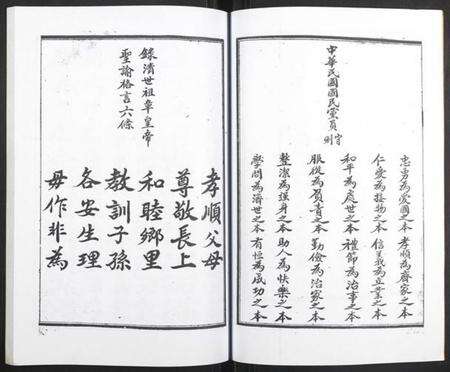 中華民國國民黨員守則
忠勇為愛國之本 孝順為齊家之本
仁愛為接物之本 信義為立業之本
和平為處世之本 禮節為治事之本
服從為負責之本 勤儉為治家之本
整潔為强身之本 助人為快樂之本
學問為濟世之本 有恒為成功之本
錄清世祖章皇帝
聖諭格言六條
孝順父母
尊敬長上
和睦鄉里
教訓子孫
各安生理
毋作非為